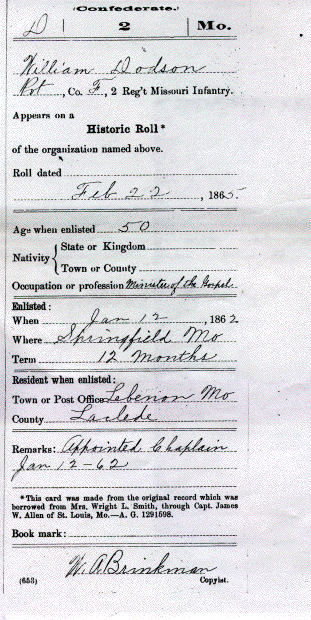 (Confederate.)
D 2 Mo.
William Dodson
Pvt, Co. F, 2 Reg't Missouri Infantry.
Appears on a
Historic Roll*
of the organization named above.
Roll dated
Feb 22, 1865.
Age when enlisted 50
Nativity { State or Kingdom
Town or County
Occupation or profession Minister of the Gospel
Enlisted:
When Jan 12, 1862.
Where Springfield Mo
Term 12 Months
Resident when enlisted:
Town or Post Office Lebenon Mo
County Laclede
Remarks: Appointed Chaplain
Jan 12-62
*This card was made from the original record which was
borrowed from Mrs. Wright L. Smith, through Capt. James
W. Allen of St. Louis, Mo.—A. G. 1291598.
Book mark:
W. A. Brinkman
(653) Copyist.